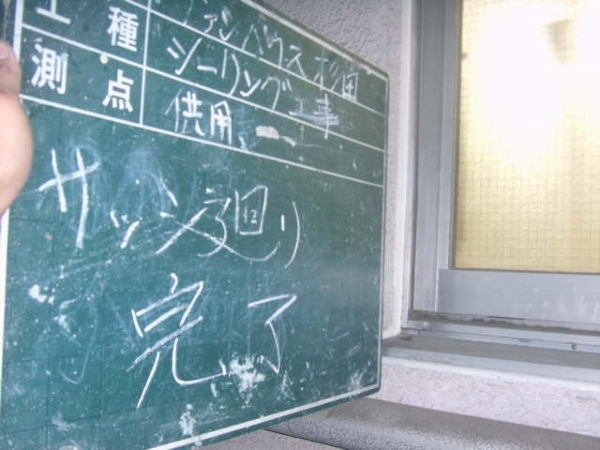 ファンハウス杉田
工種 シーリング工事
測点 供用
サッシ廻り
完了